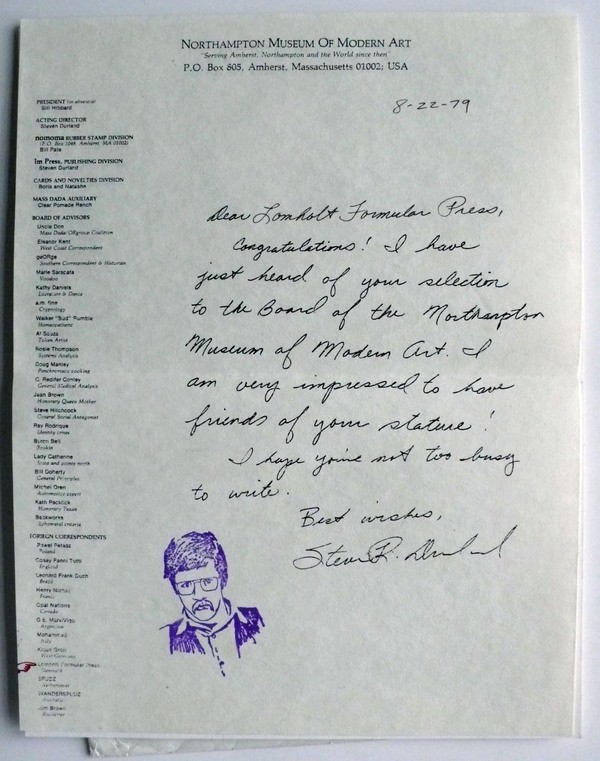 NORTHAMPTON MUSEUM OF MODERN ART
"Serving Amherst, Northampton and the World since then"
P.O. Box 805, Amherst, Massachusetts 01002; USA
8-22-79
PRESIDENT (in absentia)
Bill Hibbard
ACTING DIRECTOR
Steven Durland
nomoma RUBBER STAMP DIVISION
(P.O. Box 1048, Amherst, MA 01002)
Bill Pate
Im Press, PUBLISHING DIVISION
Steven Durland
CARDS AND NOVELTIES DIVISION
Boris and Natasha
MASS DADA AUXILIARY
Clear Pomade Ranch
BOARD OF ADVISORS
Uncle Don
Mass Dada/ORgroup Coalition
Eleanor Kent
West Coast Correspondent
geORge
Southern Correspondent & Historian
Marie Saracata
Voodoo
Kathy Daniels
Literature & Dance
a.m. fine
Cryptology
Walker "Bud" Rumble
Homeopathist
Al Souza
Token Artist
Rosie Thompson
Systems Analysis
Doug Manley
Panchromatic cooking
C. Redifer Conley
General Medical Analysis
Jean Brown
Honorary Queen Mother
Steve Hitchcock
General Social Antagonist
Ray Rodrigue
Identity crises
Buron Bell
Lady Catherine
State and points north
Bill Doherty
General Principles
Michel Oren
Automotive expert
Kath Pacstick
Honorary Texan
Backworks
Ephemeral criteria
FOREIGN CORRESPONDENTS
Pawel Petasz
Poland
Cosey Fanni Tutti
England
Leonard Frank Duch
Brazil
Henry
France
Opal Nations
Canada
G.E. Marx/Vigo
Argentina
Mohammed
Italy
Klaus Groh
West Germany
Lomholt Formular Press
Denmark
SPUZZ
WANDERSPUZZ
Australia
Jim Brown
Dear Lomholt Formular Press,
Congratulations! I have
just heard of your selection
to the Board of the Northampton
Museum of Modern Art. I
am very impressed to have
friends of your stature!
I hope you're not too busy
to write.
Best wishes,
Steven R. Durland